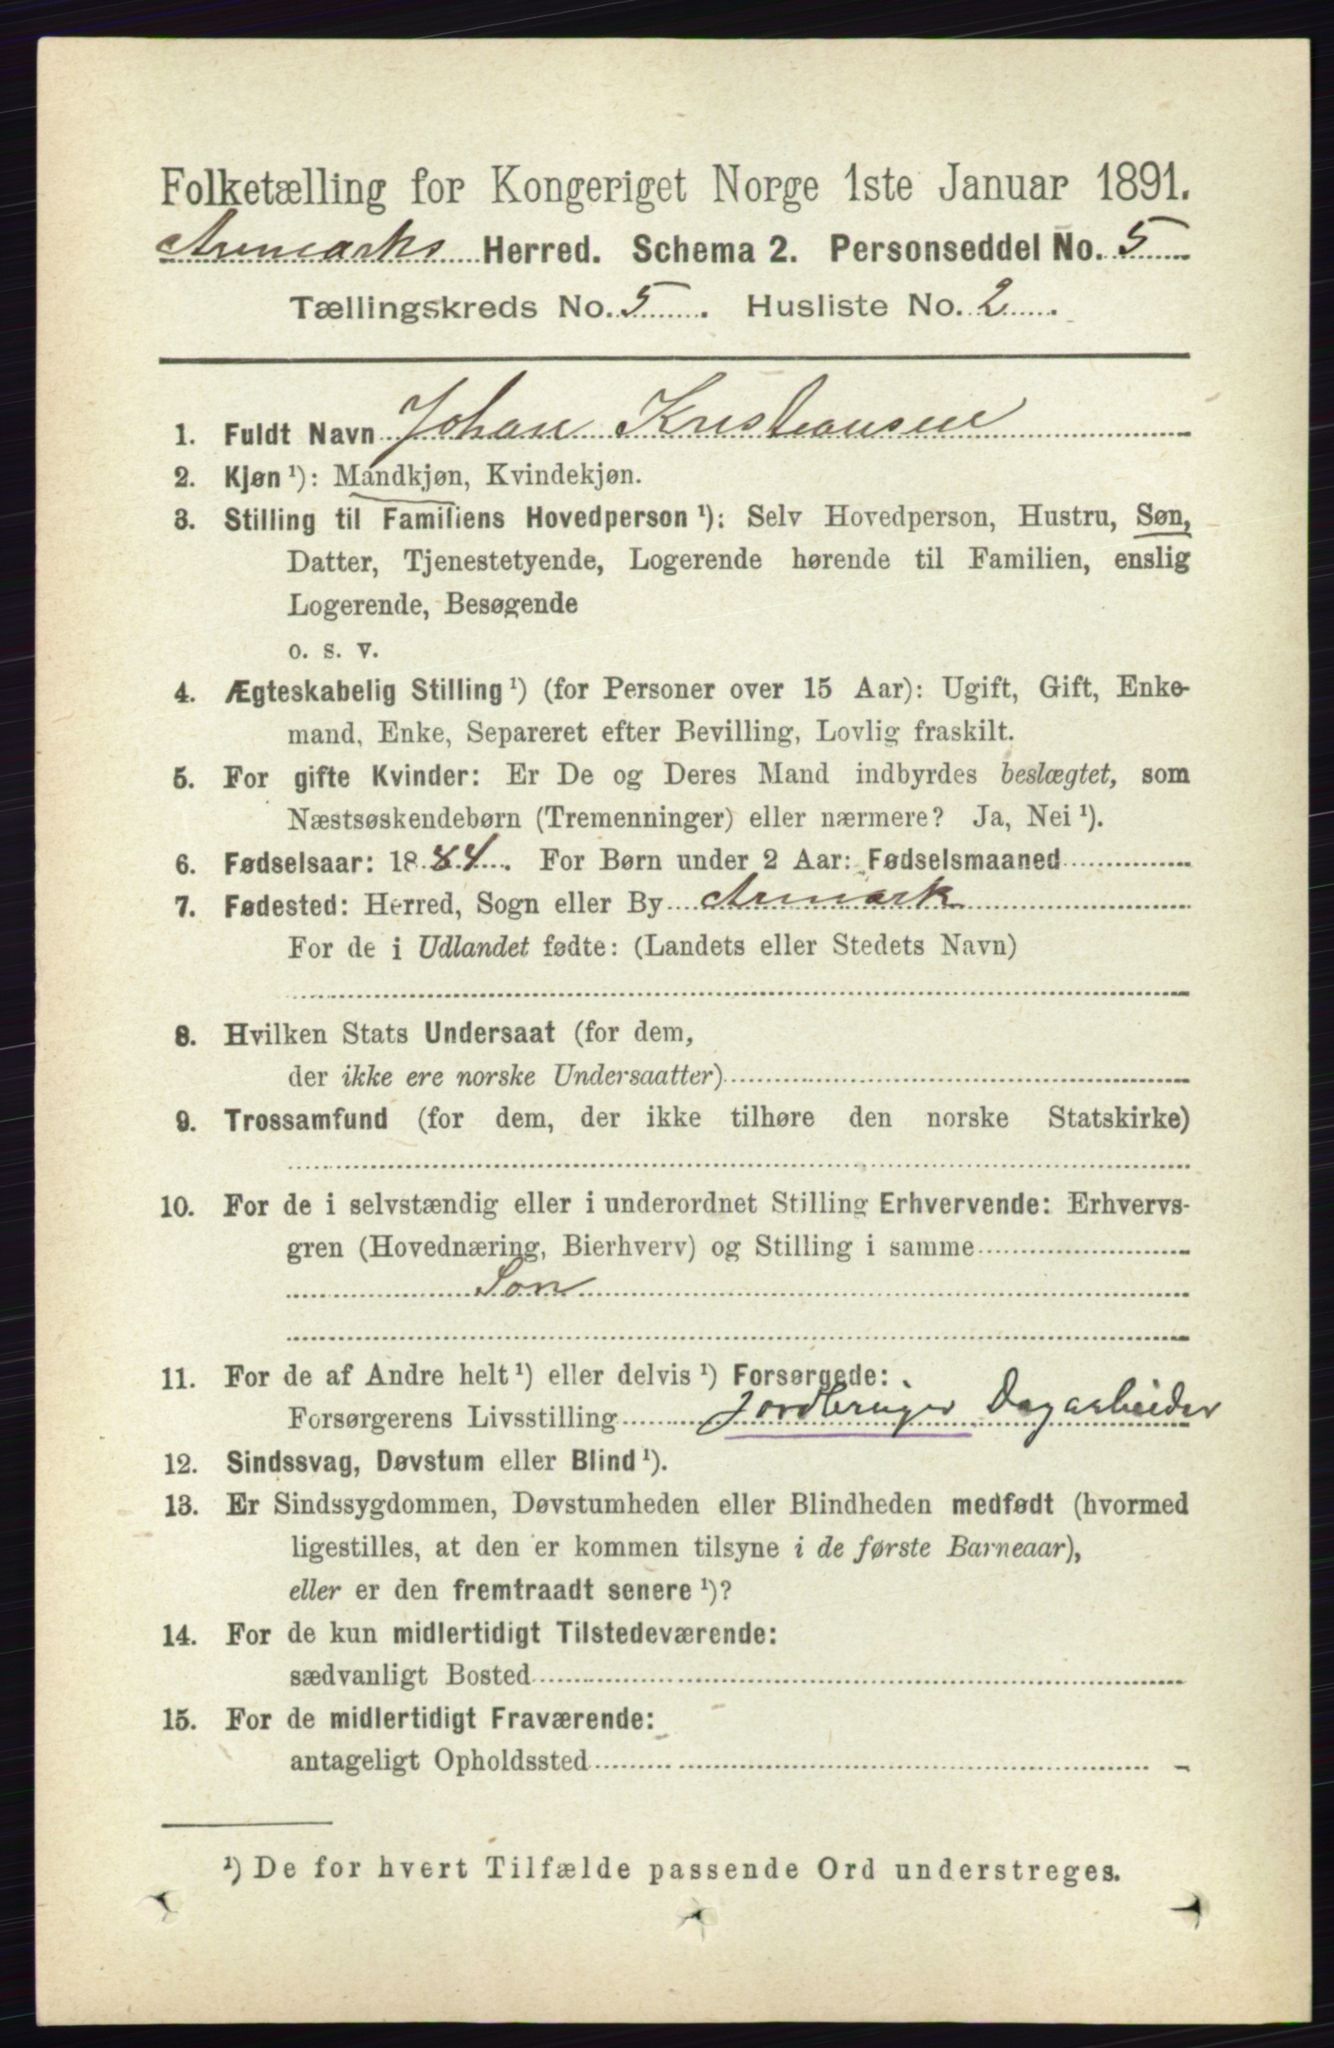 Folketælling for Kongeriget Norge 1ste Januar 1891.
Aremarks Herred. Schema 2. Personseddel No. 5
Tællingskreds No. 5. Husliste No. 2.
1. Fuldt Navn Johan Kristiansen
2. Kjøn ¹): Mandkjøn, Kvindekjøn.
3. Stilling til Familiens Hovedperson ¹): Selv Hovedperson, Hustru, Søn,
Datter, Tjenestetyende, Logerende hørende til Familien, enslig
Logerende, Besøgende
o. s. v.
4. Ægteskabelig Stilling ¹) (for Personer over 15 Aar): Ugift, Gift, Enke-
mand, Enke, Separeret efter Bevilling, Lovlig fraskilt.
5. For gifte Kvinder: Er De og Deres Mand indbyrdes beslægtet, som
Næstsøskendebørn (Tremenninger) eller nærmere? Ja, Nei ¹).
6. Fødselsaar: 1884. For Børn under 2 Aar: Fødselsmaaned
7. Fødested: Herred, Sogn eller By Armark
For de i Udlandet fødte: (Landets eller Stedets Navn)
8. Hvilken Stats Undersaat (for dem,
der ikke ere norske Undersaatter)
9. Trossamfund (for dem, der ikke tilhøre den norske Statskirke)
10. For de i selvstændig eller i underordnet Stilling Erhvervende: Erhvervs-
gren (Hovednæring, Bierhverv) og Stilling i samme
Søn
11. For de af Andre helt ¹) eller delvis ¹) Forsørgede:
Forsørgerens Livsstilling Jordbruger Dagarbeider
12. Sindssvag, Døvstum eller Blind ¹).
13. Er Sindssygdommen, Døvstumheden eller Blindheden medfødt (hvormed
ligestilles, at den er kommen tilsyne i de første Barneaar),
eller er den fremtraadt senere ¹)?
14. For de kun midlertidigt Tilstedeværende:
sædvanligt Bosted
15. For de midlertidigt Fraværende:
antageligt Opholdssted
¹) De for hvert Tilfælde passende Ord understreges.